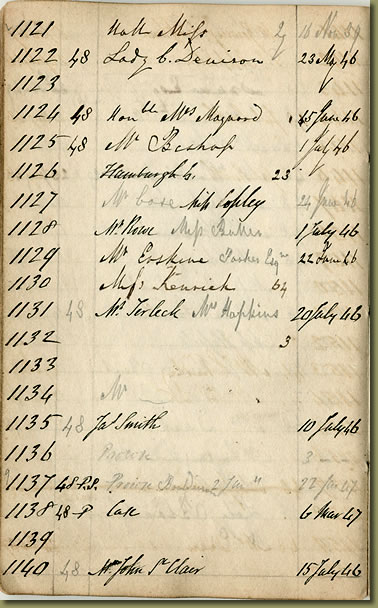 1121 Miss
1122 48 Lady C. Denison 23 May 46
1123
1124 48 Honble Mrs Maynard 15 June 46
1125 48 Mr Bishop 1 July 46
1126 Hamburgh 23
1127 Mr Miss Copley 24
1128 Mr Rowe Miss 1 July 46
1129 Mr Erskine Esqre 22 June 46
1130 Miss Kenrick 64
1131 48 Mr Terleck Mrs Hopkins 20 July 46
1132 3
1133
1134 Mr
1135 48 Jas Smith 10 July 46
1136 Prowse 3
1137 48 P.S. Prowse 22 47
1138 48 P Cox 6 Mar 47
1139
1140 48 Mrs John St Clair 15 July 46